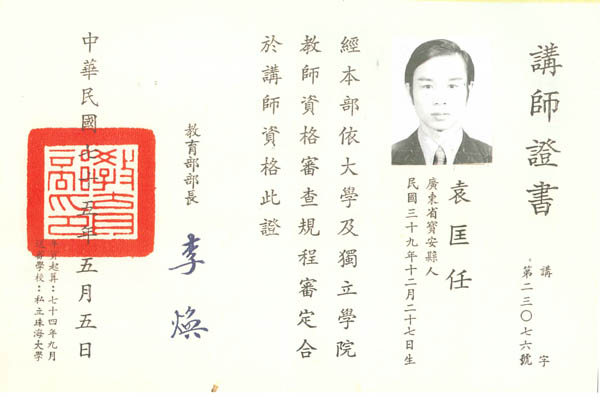 講師證書
講 字
第二三〇七六號
袁匡任
廣東省寶安縣人
民國三十九年十二月二十七日生
經本部依大學及獨立學院
教師資格審查規程審定合
於講師資格此證
教育部部長
李煥
中華民國七十五年五月五日
年資起算：七十四年九月
送審學校：私立珠海大學